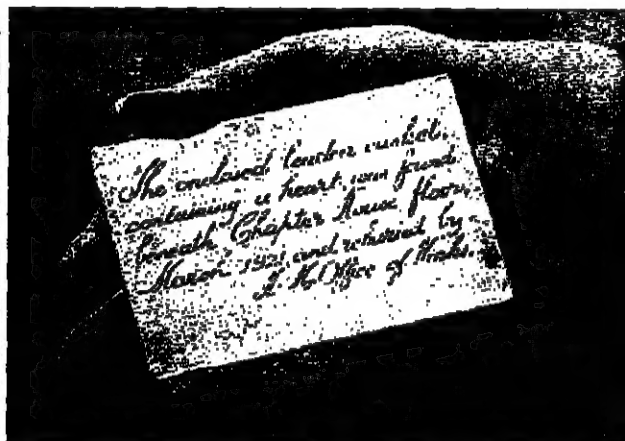 The enclosed leaden casket
containing a heart, was found
beneath Chapter House floor,
March 1921 and returned by
H. M. Office of Works.